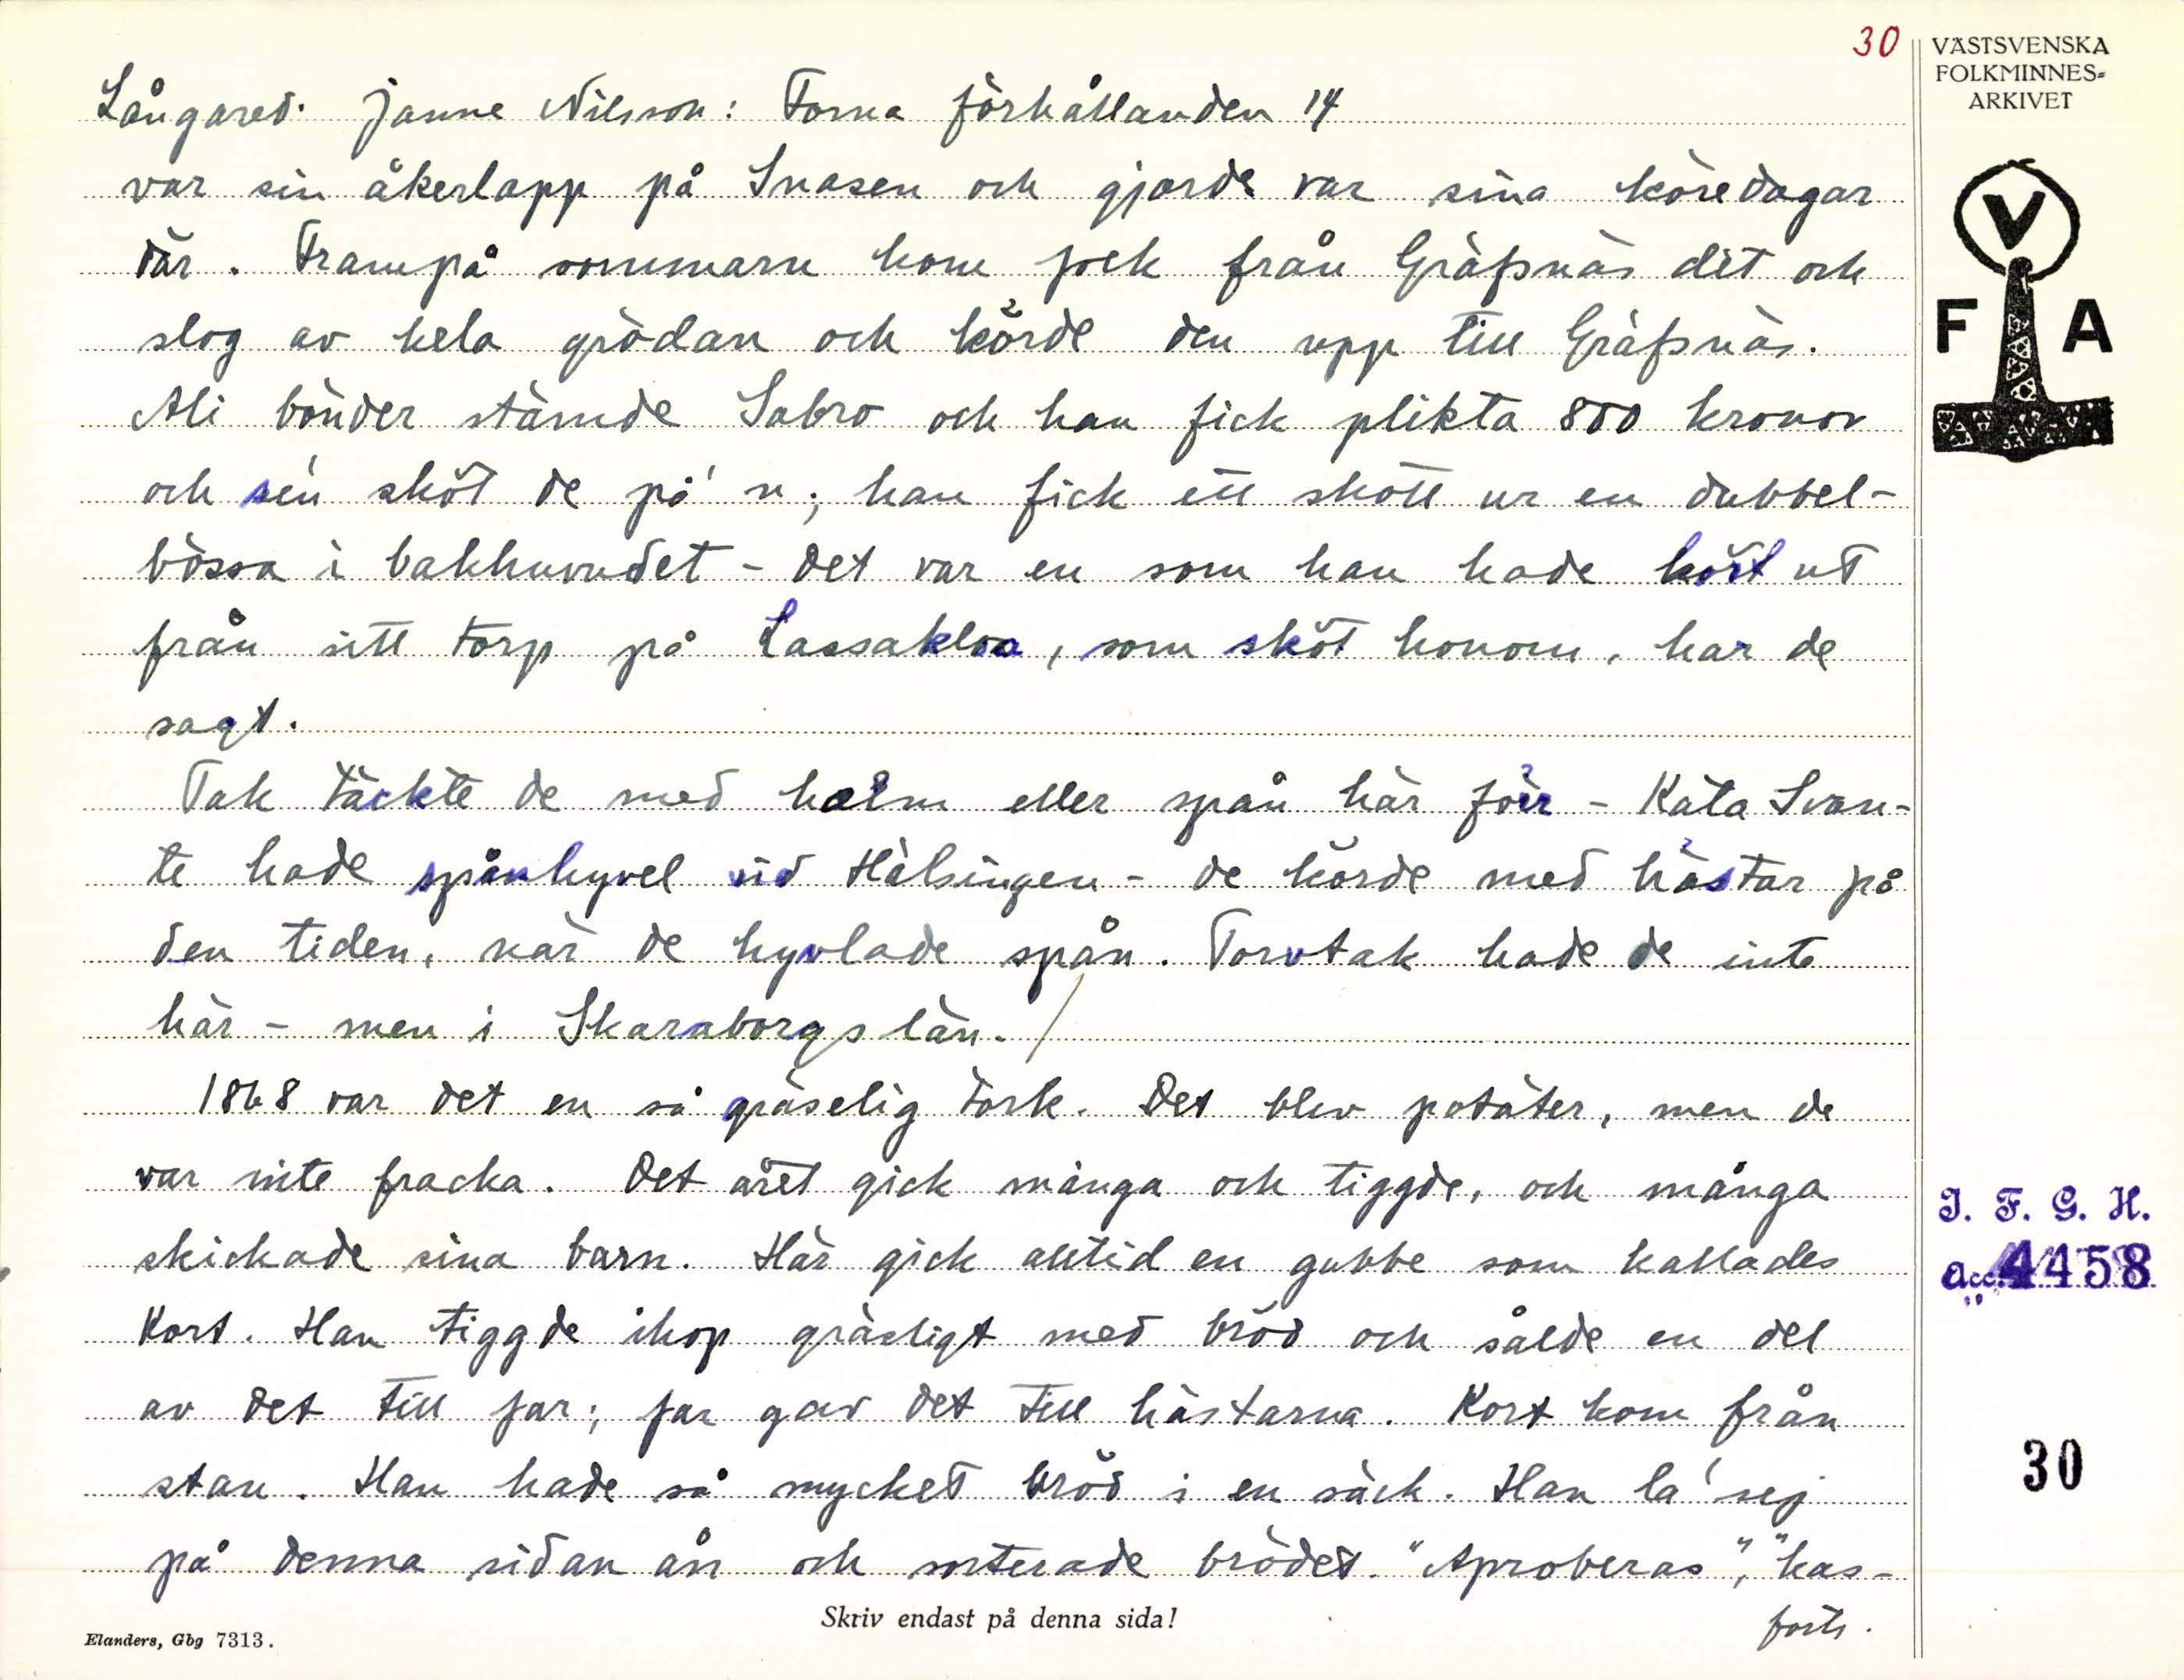 30
VÄSTSVENSKA
FOLKMINNES=
ARKIVET
Långared. Janne Nilsson: Forna förhållanden 14
var sin åkerlapp på Snasen och gjorde var sina köredagar
där. Frampå sommarn kom folk från Gräfsnäs dit och
slog av hela grödan och körde den upp till Gräfsnäs.
Ali bönder stämde Sabro och han fick plikta 800 kronor
och sén sköt de på'n; han fick ett skott ur en dubbel-
bössa i bakhuvudet - det var en som han hade kört ut
från sitt torp på Lassakloa, som sköt honom, har de
sagt.
Tak täckte de med halm eller spån här förr - Käta Svan-
te hade spånhyvel vid Hälsingen - de körde med hästar på
den tiden, när de hyvlade spån. Torvtak hade de inte
här - men i Skaraborgs län. /
1868 var det en så gräselig tork. Det blev potäter, men de
var inte fracka. Det året gick många och tiggde, och många
skickade sina barn. Här gick alltid en gubbe som kallades
Kort. Han tiggde ihop gräsligt med bröd och sålde en del
av det till far; far gav det till hästarna. Kort kom från
stan. Han hade så mycket bröd i en säck. Han la' sej
på denna sidan ån och sorterade brödet. "Aproberas", "kas-
forts.
Skriv endast på denna sida!
Elanders, Gbg 7313.
V
F A
I. F. G. H.
acc. 4458
30